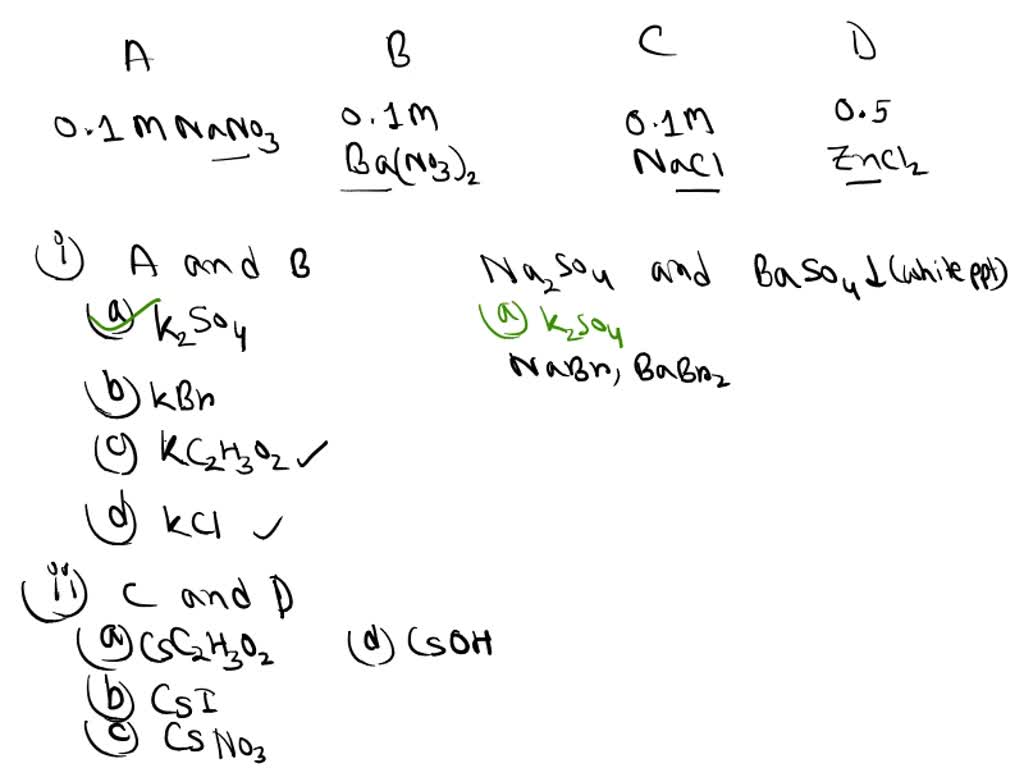 A B C D
0.1M NaNO3 0.1M Ba(NO3)2 0.1M NaCl 0.5 ZnCl2
(i) A and B
(a) K2SO4
(b) KBr
(c) KC2H3O2 ✓
(d) KCl ✓
Na2SO4 and BaSO4↓(white ppt)
(a) K2SO4
NaBr, BaBr2
(ii) C and D
(a) CsC2H3O2 (d) CsOH
(b) CsI
(c) CsNO3